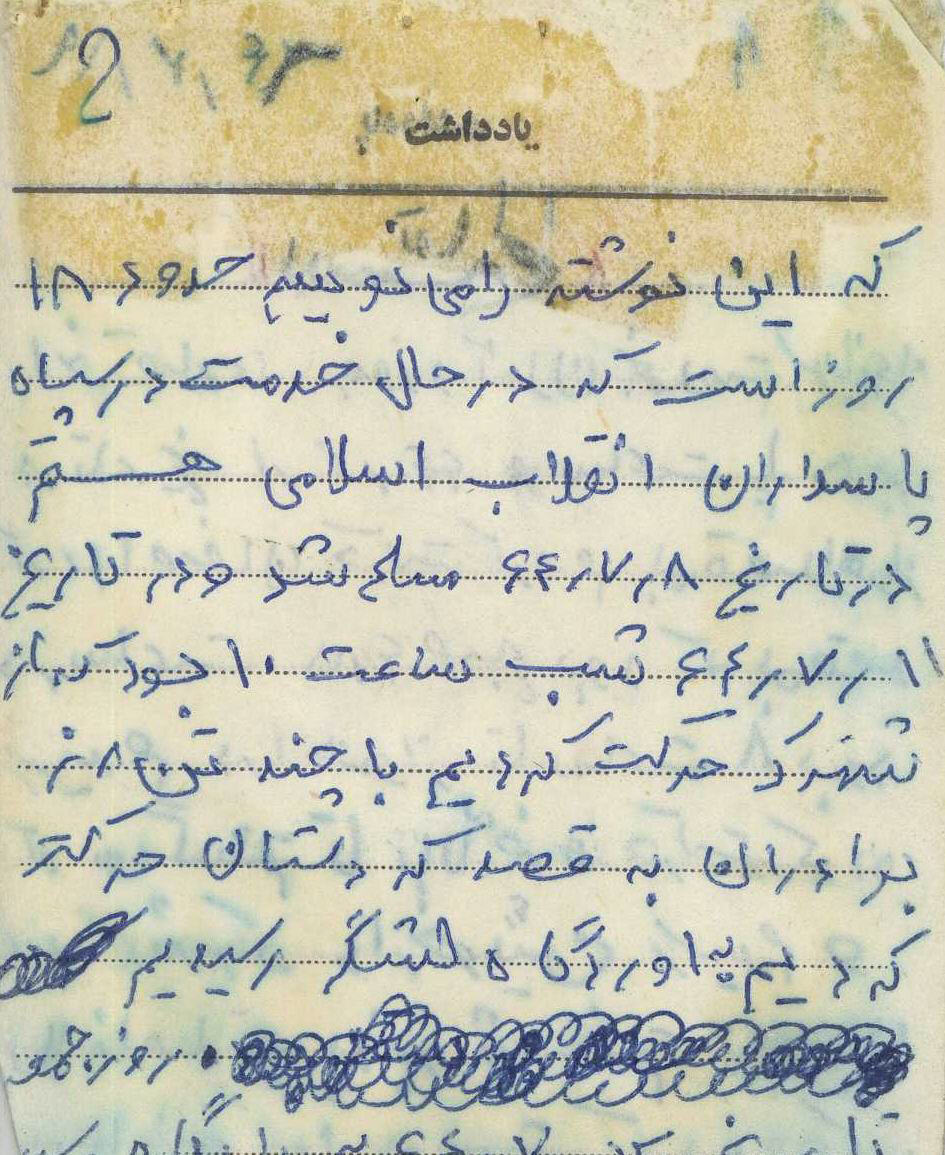 2
یادداشت
که این نوشته را می نویسم حدود ۱۸
روز است که در حال خدمت در سپاه
پاسداران انقلاب اسلامی هستم
در تاریخ ۶۴٫۷٫۸ مسلح شد و در تاریخ
۶۴٫۷٫۱۱ شب ساعت ۱۰ بود که از
شهرکرد حرکت کردیم با چند تن از
برادران به قصد کردستان حرکت
کردیم به اوردگاه لشگر رسیدیم
. روز